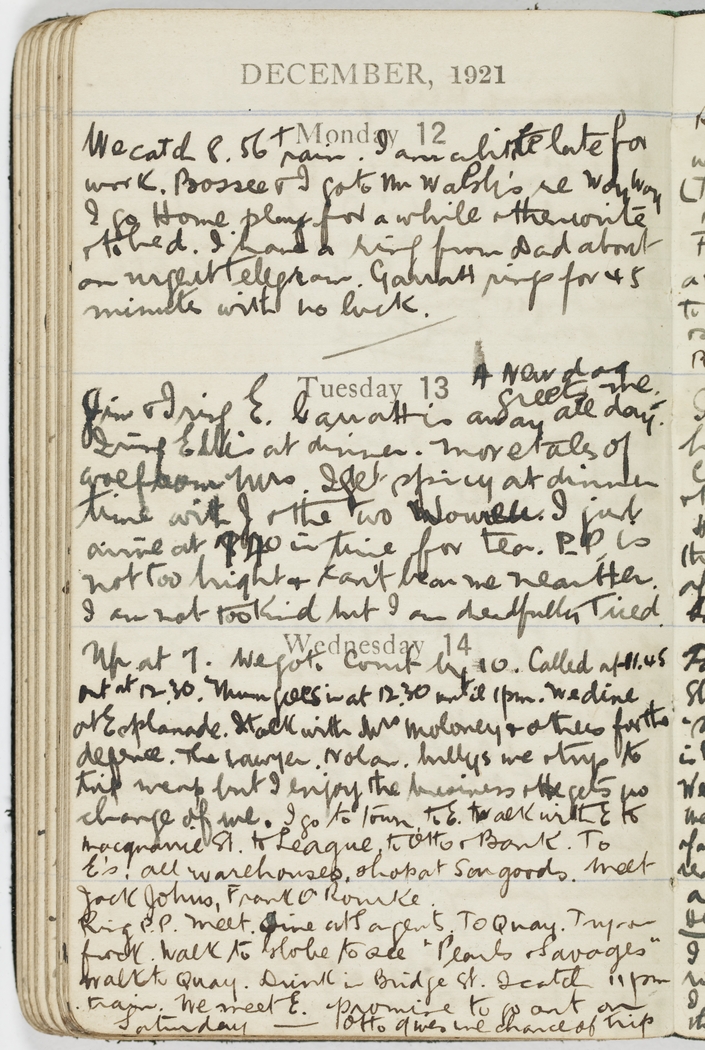 DECEMBER, 1921
Monday 12
We catch 8.56 train. I am a little late for
work. Bosser & I go to Mr Walsh's re Way Way
I go Home play for a while & then write
& to bed. I have a ring from Dad about
an urgent telegram. Garratt rings for 45
minutes with no luck.
A New dog
Tuesday 13
greets me.
Jim & I ring E. Garratt is away all day.
I ring Ellis at dinner. More tales of
from Mrs. I get spicy at dinner
time with J & the two Women. I just
arrive at in time for tea. P.P. is
not too bright & can't hear me neither.
I am not too kind but I am dreadfully Tired
Wednesday 14
Up at 7. We go to Court by 10. Called at 11.45
out at 12.30. Mum goes in at 12.30 until 1pm. We dine
at Esplanade. I talk with Mrs Moloney & others for the
defence. The lawyer, Nolan, bullys me & tries to
trip me up but I enjoy the business & he gets no
change of me. I go to Town, to E. Walk with E to
Macquarie St. to League, to Otto & Bank. To
E's! all warehouses, shop at goods. Meet
Jack Johns, Frank O'Rourke.
Ring P.P. Meet. Dine at Sargents. To Quay. Try on
frock. Walk to Globe to see "Pearls & Savages"
Walk to Quay. Drink in Bridge St. I catch 11pm
train. We meet E. promise to go out on
Saturday — Otto gives me chance of trip